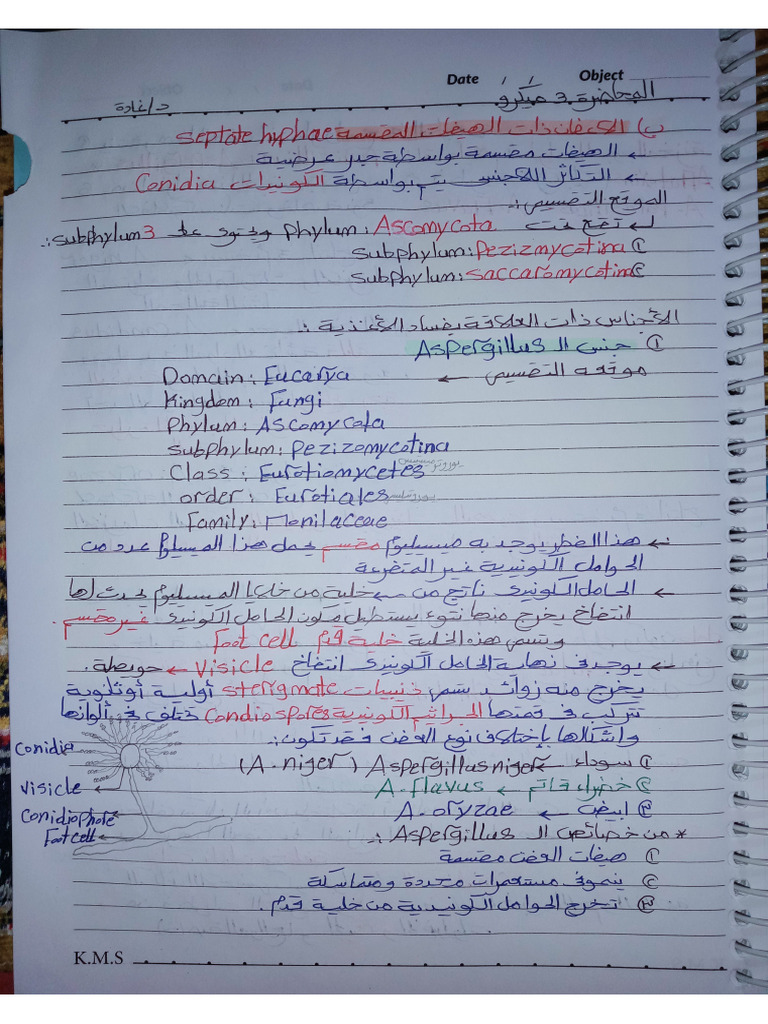 Date / / Object
المحاضرة 3 ميكرو د/غادة
ب) الاعفان ذات الهيفات المقسمة septate hyphae
↳ الهيفات مقسمة بواسطة جدر عرضية
↳ التكاثر اللاجنسي يتم بواسطة الكونيدات Conidia
الموقع التقسيمي :.
↳ تقع تحت Phylum: Ascomycota وتحتوي على 3 subphylum :.
① subphylum: Pezizmycotina
② subphylum: saccaromycotina
الأجناس ذات العلاقة بفساد الأغذية :.
① جنس الـ Aspergillus
موقعه التقسيمي ←
Domain: Eucarya
Kingdom: Fungi
Phylum: Ascomycota
subphylum: Pezizomycotina
Class: Eurotiomycetes
order: Eurotiales
Family: Monilaceae
↳ هذا الفطر يوجد به ميسيليوم مقسم يحمل هذا الميسليوم عدد من
الحوامل الكونيدية غير المتفرعة
← الحامل الكونيدي ناتج من ← خلية من خلايا الميسيليوم يحدث لها
انتفاخ يخرج منها نتوء يستطيل مكون الحامل الكونيدي غير مقسم .
وتسمى هذه الخلية خلية قدم Foot cell
↳ يوجد في نهاية الحامل الكونيدي انتفاخ Visicle ← حويصلة .
يخرج منه زوائد تسمى ذنيبات sterigmate أولية أو ثانوية
تتركب في قمتها الجراثيم الكونيدية Condiospores تختلف في ألوانها
واشكالها بإختلاف نوع العفن فقد تكون :.
① سوداء ← Aspergillus niger (A. niger)
② خضراء قاتم ← A. flavus
③ ابيض ← A. oryzae
* من خصائص الـ Aspergillus :.
① هيفات العفن مقسمة
② ينمو في مستعمرات محددة ومتماسكة
③ تخرج الحوامل الكونيدية من خلية قدم .
Conidia
Visicle
Conidiophore
Foot cell
K.M.S